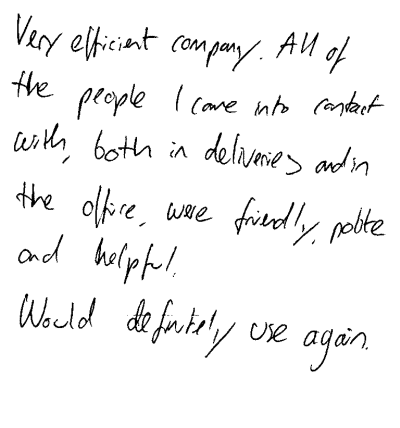 Very efficient company. All of
the people I came into contact
with, both in deliveries and in
the office, were friendly, polite
and helpful.
Would definitely use again.